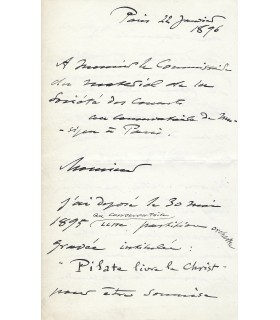 Paris 22 Janvier
1896
A Monsieur le Commissaire
du matériel de la
Société des Concerts
au conservatoire de mu-
sique à Paris.
Monsieur
j'ai déposé le 30 mai
1895 au conservatoire une partition orchestre
gravée intitulée:
"Pilate livre le Christ"
pour être soumise